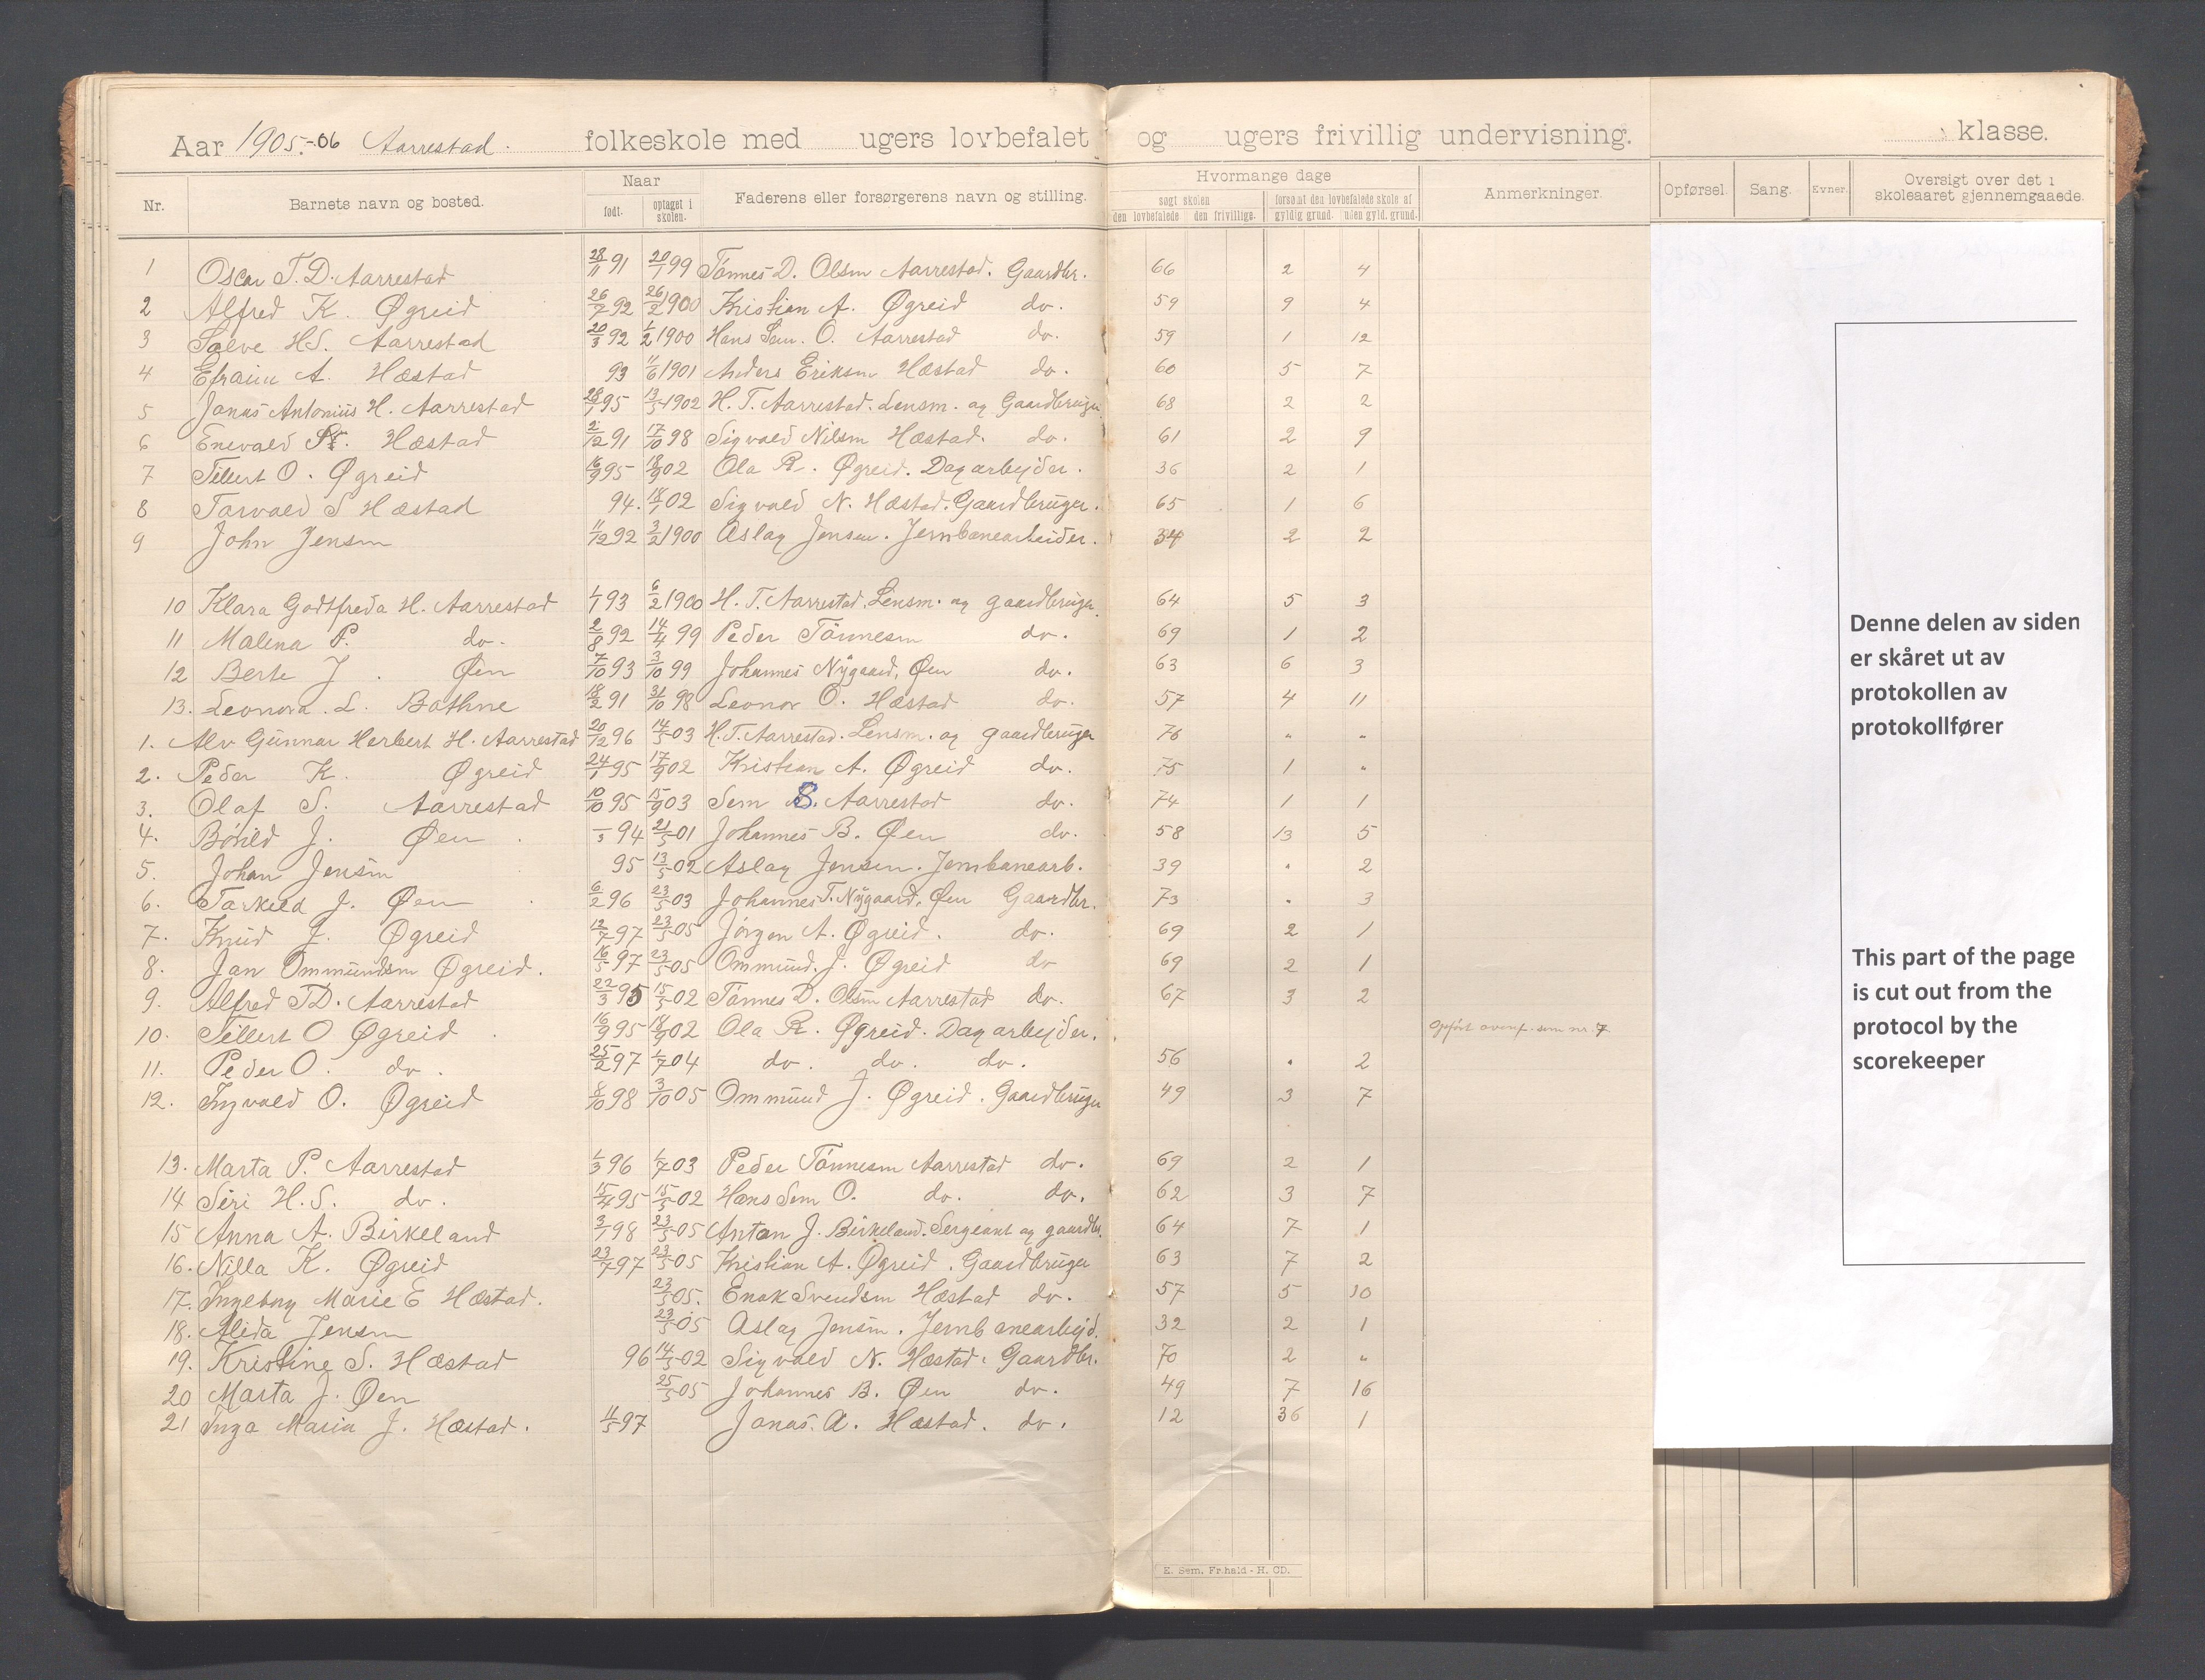 Aar 1905-06 Aarrestad. folkeskole med ugers lovbefalet og ugers frivillig undervisning. klasse.
Nr. Barnets navn og bosted. Naar født. optaget i skolen. Faderens eller forsørgerens navn og stilling. Hvormange dage søgt skolen den lovbefalede den frivillige. forsømt den lovbefalede skole af gyldig grund. uden gyld. grund. Anmerkninger. Opførsel. Sang. Evner. Oversigt over det i skoleaaret gjennemgaaede.
1 Oscar T. D. Aarrestad 28/11 91 20/1 99 Tønnes D. Olsen Aarrestad. Gaardbr. 66 2 4
2 Alfred K. Øgreid 26/7 92 26/2 1900 Kristian A. Øgreid do. 59 9 4
3 Salve H.S. Aarrestad 20/3 92 1/2 1900 Hans Sem. O. Aarrestad do. 59 1 12
4 Efraim A. Hæstad 93 11/6 1901 Anders Eriksen Hæstad do. 60 5 7
5 Jonas Antonius H. Aarrestad 28/1 95 13/5 1902 H. T. Aarrestad. Lensm. og Gaardbruger 68 2 2
6 Enevald S. Hæstad 2/12 91 17/10 98 Sigvald Nilsen Hæstad. do. 61 2 9
7 Tillert O. Øgreid 16/9 95 18/9 02 Ola R. Øgreid. Dagarbejder. 36 2 1
8 Torvald S Hæstad 94. 18/1 02 Sigvald N. Hæstad. Gaardbruger. 65 1 6
9 John Jensen 11/12 92 3/2 1900 Aslag Jensen. Jernbanearbeider. 34 2 2
10 Klara Godtfreda H. Aarrestad 1/1 93 6/2 1900 H. T. Aarrestad. Lensm. og gaardbruger. 64 5 3
11 Malena P. do. 2/8 92 14/4 99 Peder Tønnesen do. 69 1 2
12 Berte J. Øen 7/10 93 3/10 99 Johannes Nygaard, Øen do. 63 6 3
13. Leonora. L. Bothne 18/2 91 31/10 98 Leonor O. Hæstad do. 57 4 11
1. Alv Gunnar Herbert H. Aarrestad 20/12 96 14/5 03 H. T. Aarrestad. Lensm. og gaardbruger 76 " "
2. Peder K. Øgreid 24/1 95 17/9 02 Kristian A. Øgreid do. 75 1 "
3. Olaf S. Aarrestad 10/10 95 15/9 03 Sem S. Aarrestad do. 74 1 1
4. Børild J. Øen 94 21/5 01 Johannes B. Øen do. 58 13 5
5. Johan Jensen 95 13/5 02 Aslag Jensen. Jernbanearb. 39 " 2
6. Tarkeld J. Øen 6/2 96 23/5 03 Johannes T. Nygaard, Øen Gaardbr. 73 " 3
7. Knud J. Øgreid 12/7 97 23/5 05 Jørgen A. Øgreid. do. 69 2 1
8. Jan Ommundsen Øgreid. 16/5 97 23/5 05 Ommund. J. Øgreid do 69 2 1
9. Alfred T.D. Aarrestad 22/3 95 15/5 02 Tønnes D. Olsen Aarrestad do. 67 3 2
10. Tillert O Øgreid 16/9 95 18/9 02 Ola R. Øgreid. Dagarbejder. Opført ovenf. som nr. 7
11. Peder O. do. 25/2 97 1/7 04 do. do. do. 56 " 2
12. Ingvald O. Øgreid 8/10 98 3/10 05 Ommund J. Øgreid. Gaardbruger 49 3 7
13. Marta P. Aarrestad 1/3 96 1/7 03 Peder Tønnesen Aarrestad do. 69 2 1
14 Siri H.S. do. 15/4 95 15/5 02 Hans Sem O. do. do. 62 3 7
15 Anna A. Birkeland 3/1 98 23/5 05 Anton J. Birkeland. Sergeant og gaardbr. 64 7 1
16. Nilla K. Øgreid 23/7 97 23/5 05 Kristian A. Øgreid. Gaardbruger 63 7 2
17. Ingeborg Marie E Hæstad. 23/5 05. Enok Svendsen Hæstad do. 57 5 10
18. Alida Jensen 23/5 05 Aslag Jensen. Jernbanearbejd. 32 2 1
19. Kristine S. Hæstad 96 14/5 02 Sigvald N. Hæstad. Gaardbr. 70 2 "
20 Marta J. Øen 25/5 05 Johannes B. Øen do. 49 7 16
21 Inga Maria J. Hæstad. 4/5 97 Jonas. A. Hæstad. do. 12 36 1
E. Sem, Fr.hald - H. OD.
Denne delen av siden
er skåret ut av
protokollen av
protokollfører
This part of the page
is cut out from the
protocol by the
scorekeeper